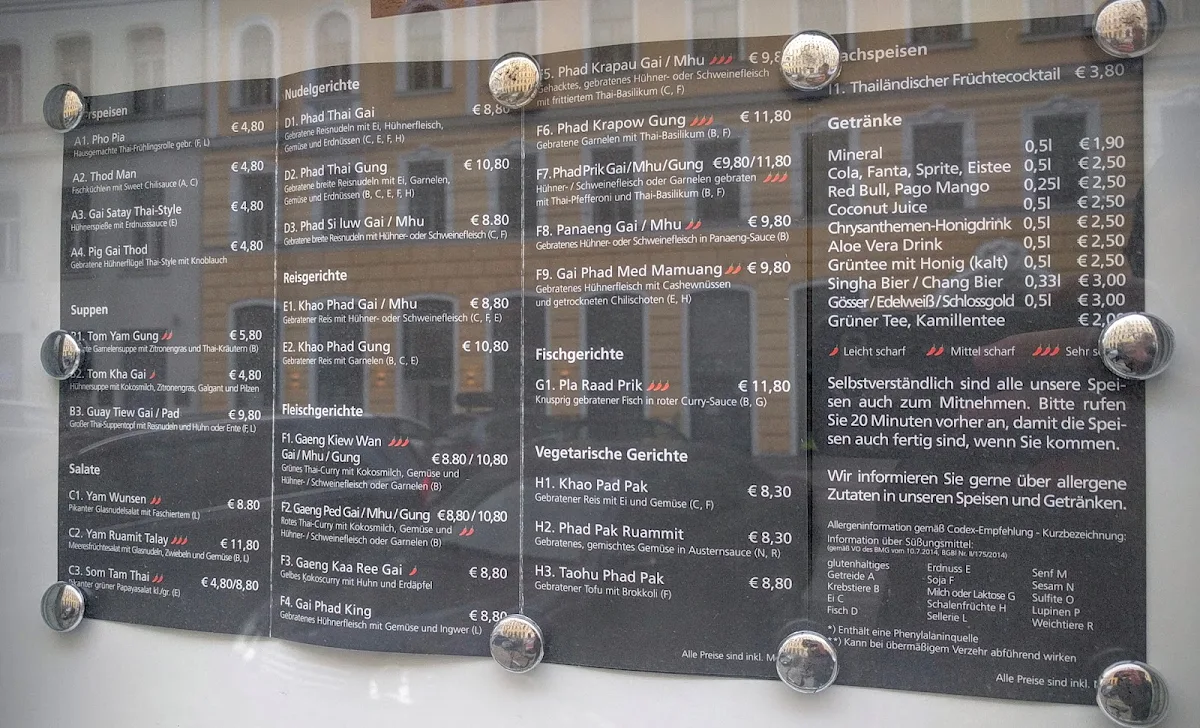 A1. Pho Pia € 4,80
Hausgemachte Thai-Frühlingsrolle gebr. (F, L)
A2. Thod Man € 4,80
Fischküchlein mit Sweet Chilisauce (A, C)
A3. Gai Satay Thai-Style € 4,80
Hühnerspieße mit Erdnusssauce (E)
A4. Pig Gai Thod € 4,80
Gebratene Hühnerflügel Thai-Style mit Knoblauch
Suppen
B1. Tom Yam Gung € 5,80
Garnelensuppe mit Zitronengras und Thai-Kräutern (B)
B2. Tom Kha Gai € 4,80
Hühnersuppe mit Kokosmilch, Zitronengras, Galgant und Pilzen
B3. Guay Tiew Gai / Pad € 9,80
Großer Thai-Suppentopf mit Reisnudeln und Huhn oder Ente (F, L)
Salate
C1. Yam Wunsen € 8.80
Pikanter Glasnudelsalat mit Faschiertem (L)
C2. Yam Ruamit Talay € 11,80
Meeresfrüchtesalat mit Glasnudeln, Zwiebeln und Gemüse (B, L)
C3. Som Tam Thai € 4,80/8,80
Pikanter grüner Papayasalat kl./gr. (E)
Nudelgerichte
D1. Phad Thai Gai € 8,80
Gebratene Reisnudeln mit Ei, Hühnerfleisch,
Gemüse und Erdnüssen (C, E, F, H)
D2. Phad Thai Gung € 10,80
Gebratene breite Reisnudeln mit Ei, Garnelen,
Gemüse und Erdnüssen (B, C, E, F, H)
D3. Phad Si luw Gai / Mhu € 8.80
Gebratene breite Reisnudeln mit Hühner- oder Schweinefleisch (C, F)
Reisgerichte
E1. Khao Phad Gai / Mhu € 8,80
Gebratener Reis mit Hühner- oder Schweinefleisch (C, F, E)
E2. Khao Phad Gung € 10,80
Gebratener Reis mit Garnelen (B, C, E)
Fleischgerichte
F1. Gaeng Kiew Wan
Gai / Mhu / Gung € 8.80 / 10,80
Grünes Thai-Curry mit Kokosmilch, Gemüse und
Hühner- / Schweinefleisch oder Garnelen (B)
F2. Gaeng Ped Gai / Mhu / Gung €8,80/10,80
Rotes Thai-Curry mit Kokosmilch, Gemüse und
Hühner- / Schweinefleisch oder Garnelen (B)
F3. Gaeng Kaa Ree Gai € 8,80
Gelbes Kokoscurry mit Huhn und Erdäpfel
F4. Gai Phad King € 8,80
Gebratenes Hühnerfleisch mit Gemüse und Ingwer (L)
F5. Phad Krapau Gai / Mhu € 9,8
Gehacktes, gebratenes Hühner- oder Schweinefleisch
mit frittiertem Thai-Basilikum (C, F)
F6. Phad Krapow Gung € 11,80
Gebratene Garnelen mit Thai-Basilikum (B, F)
F7. Phad Prik Gai/Mhu/Gung €9,80/11,80
Hühner- / Schweinefleisch oder Garnelen gebraten
mit Thai-Pfefferoni und Thai-Basilikum (B, F)
F8. Panaeng Gai / Mhu € 9,80
Gebratenes Hühner- oder Schweinefleisch in Panaeng-Sauce (B)
F9. Gai Phad Med Mamuang € 9,80
Gebratenes Hühnerfleisch mit Cashewnüssen
und getrockneten Chilischoten (E, H)
Fischgerichte
G1. Pla Raad Prik € 11,80
Knusprig gebratener Fisch in roter Curry-Sauce (B, G)
Vegetarische Gerichte
H1. Khao Pad Pak € 8,30
Gebratener Reis mit Ei und Gemüse (C, F)
H2. Phad Pak Ruammit € 8,30
Gebratenes, gemischtes Gemüse in Austernsauce (N, R)
H3. Taohu Phad Pak € 8,80
Gebratener Tofu mit Brokkoli (F)
Alle Preise sind inkl.
achspeisen
I1. Thailändischer Früchtecocktail € 3,80
Getränke
Mineral 0,5l € 1,90
Cola, Fanta, Sprite, Eistee 0,5l € 2,50
Red Bull, Pago Mango 0,25l € 2,50
Coconut Juice 0,5l € 2,50
Chrysanthemen-Honigdrink 0,5l € 2,50
Aloe Vera Drink 0,5l € 2,50
Grüntee mit Honig (kalt) 0,5l € 2,50
Singha Bier / Chang Bier 0,33l € 3,00
Gösser/Edelweiß/Schlossgold 0,5l € 3,00
Grüner Tee, Kamillentee € 2,0
Leicht scharf Mittel scharf Sehr
Selbstverständlich sind alle unsere Spei-
sen auch zum Mitnehmen. Bitte rufen
Sie 20 Minuten vorher an, damit die Spei-
sen auch fertig sind, wenn Sie kommen.
Wir informieren Sie gerne über allergene
Zutaten in unseren Speisen und Getränken.
Allergeninformation gemäß Codex-Empfehlung - Kurzbezeichnung:
Information über Süßungsmittel:
(gemäß VO des BMG vom 10.7.2014, BGBl Nr. II/175/2014)
glutenhaltiges
Getreide A
Krebstiere B
Ei C
Fisch D
Erdnuss E
Soja F
Milch oder Laktose G
Schalenfrüchte H
Sellerie L
Senf M
Sesam N
Sulfite O
Lupinen P
Weichtiere R
*) Enthält eine Phenylalaninquelle
**) Kann bei übermäßigem Verzehr abführend wirken
Alle Preise sind inkl.